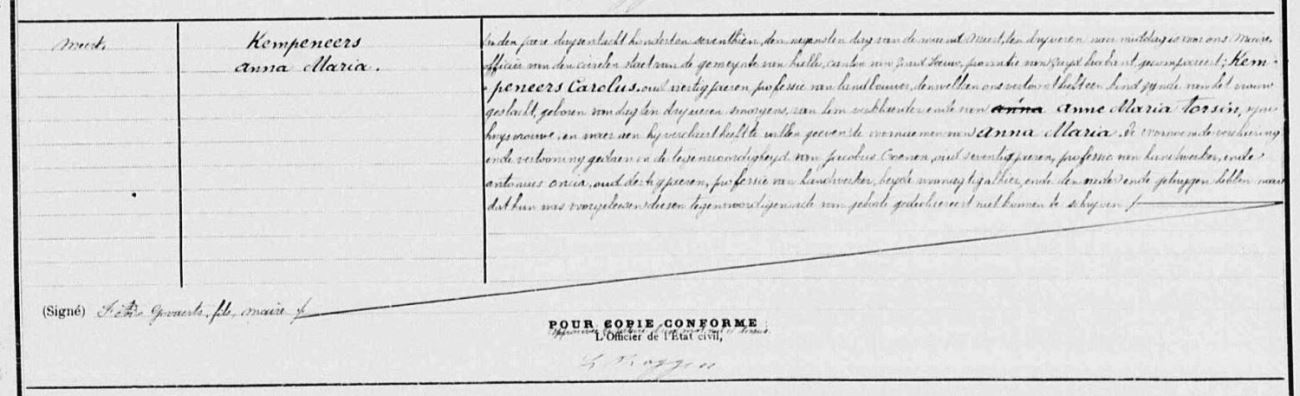 Meert
Kempeneers
Anna Maria.
In den jaere duyzentacht hondert en seventhien, den negensten dag van de maend Meert, ten dry veren naer middag is voor ons Maire
officier van den civielen staet van de gemeynte van halle, canton van Leeuw, provintie van Zuyd braband, gecompareert; Kem-
peneers Carolus, oud veertig jaeren, professie van landbouwer, denwelken ons vertoont heeft een kind zynde van het vrouw
geslacht, geboren van dag ten dry ueren smorgens, van hem verklaerder ende van anna Anne Maria Torsin, syne
huysvrouwe, en waer aen hy verclaert heeft te willen geeven de voornaemen van Anna Maria. de voornoemde verclaering
ende vertooning gedaen in de tegenwoordigheyd van Jacobus oud seventig jaeren, professie van handwerker, ende
antonius oud dertig jaeren, professie van handwerker, beyde woonagtig alhier, ende den vader ende getuygen hebben naer
dat hun was voorgelesen desen tegenwoordigen acte van geboorte gedeclareert niet konnen te schryven /
(Signé) Govaerts, fils, maire /
POUR COPIE CONFORME
L'Officier de l'État civil,